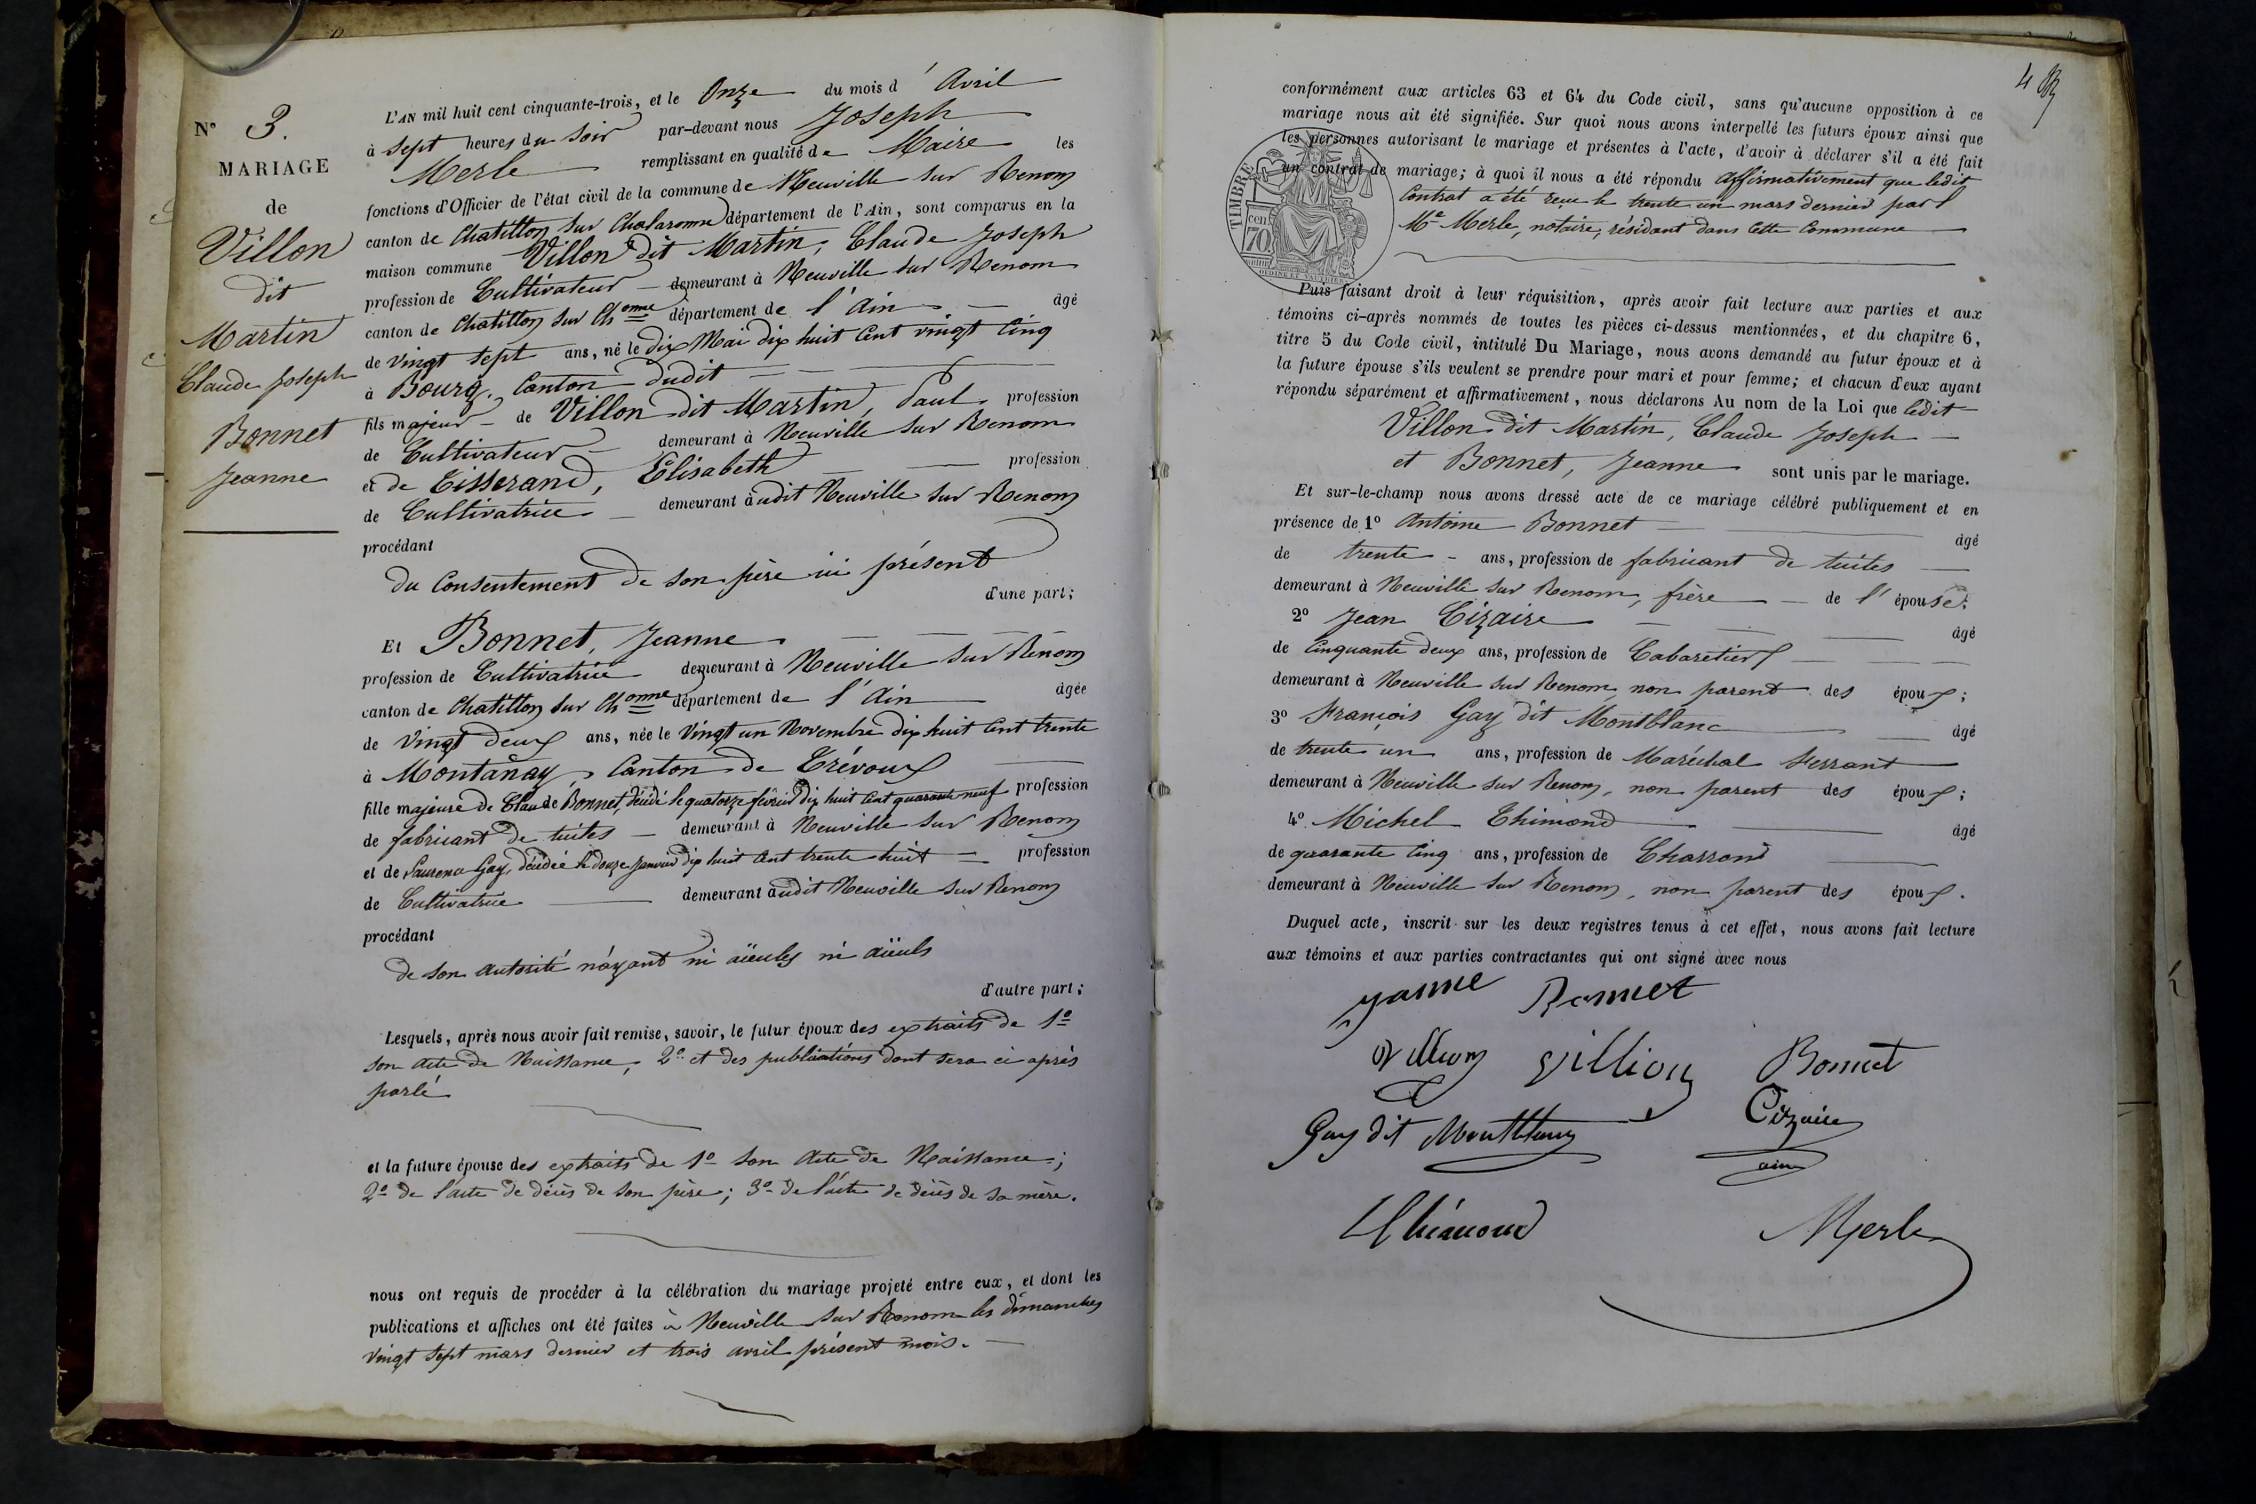 N° 3.
MARIAGE
de
Villon
dit
Martin
Claude Joseph
Bonnet
Jeanne
L'AN mil huit cent cinquante-trois, et le Onze du mois d'Avril
à sept heures du soir par-devant nous Joseph
Merle remplissant en qualité de Maire les
fonctions d'Officier de l'état civil de la commune de Neuville sur Renom
canton de Chatillon sur Chalaronne département de l'Ain, sont comparus en la
maison commune Villon dit Martin, Claude Joseph
profession de Cultivateur demeurant à Neuville sur Renom
canton de Chatillon sur Chonne département de l'Ain âgé
de vingt sept ans, né le dix Mai dix huit cent vingt cinq
à Bourg, Canton dudit
fils majeur de Villon dit Martin, Paul profession
de Cultivateur demeurant à Neuville sur Renom
et de Tisserand, Elisabeth profession
de Cultivatrice demeurant audit Neuville sur Renom
procédant
du Consentement de son père ici présent
d'une part;
Et Bonnet, Jeanne
profession de Cultivatrice demeurant à Neuville sur Renom
canton de Chatillon sur Chonne département de l'Ain âgée
de vingt deux ans, née le vingt un Novembre dix huit cent trente
à Montanay, Canton de Trévoux
fille majeure de Claude Bonnet, décédé le quatorze février dix huit cent quarante neuf profession
de fabricant de tuites demeurant à Neuville sur Renom
et de Laurence Gay, décédée le douze janvier dix huit cent trente huit profession
de Cultivatrice demeurant audit Neuville sur Renom
procédant
de son autorité n'ayant ni aïeules ni aïeuls
d'autre part;
Lesquels, après nous avoir fait remise, savoir, le futur époux des extraits de 1°
son acte de Naissance, 2° et des publications dont sera ci après
parlé
et la future épouse des extraits de 1° son Acte de Naissance;
2° de l'acte de décès de son père; 3° de l'acte de décès de sa mère.
nous ont requis de procéder à la célébration du mariage projeté entre eux, et dont les
publications et affiches ont été faites à Neuville sur Renom les dimanches
vingt sept mars dernier et trois avril présent mois.
4
conformément aux articles 63 et 64 du Code civil, sans qu'aucune opposition à ce
mariage nous ait été signifiée. Sur quoi nous avons interpellé les futurs époux ainsi que
les personnes autorisant le mariage et présentes à l'acte, d'avoir à déclarer s'il a été fait
un contrat de mariage; à quoi il nous a été répondu affirmativement que ledit
Contrat a été reçu le trente un mars dernier par
Me Merle, notaire, résidant dans cette Commune
TIMBRE
cen
70
OUDINE ET VAUTHIER
Puis faisant droit à leur réquisition, après avoir fait lecture aux parties et aux
témoins ci-après nommés de toutes les pièces ci-dessus mentionnées, et du chapitre 6,
titre 5 du Code civil, intitulé Du Mariage, nous avons demandé au futur époux et à
la future épouse s'ils veulent se prendre pour mari et pour femme; et chacun d'eux ayant
répondu séparément et affirmativement, nous déclarons Au nom de la Loi que ledit
Villon dit Martin, Claude Joseph
et Bonnet, Jeanne sont unis par le mariage.
Et sur-le-champ nous avons dressé acte de ce mariage célébré publiquement et en
présence de 1° Antoine Bonnet âgé
de trente ans, profession de fabricant de tuites
demeurant à Neuville sur Renom, frère de l'épouse;
2° Jean Cizaire âgé
de Cinquante deux ans, profession de Cabaretier
demeurant à Neuville sur Renom non parent des époux;
3° François Gay dit Montblanc âgé
de trente un ans, profession de Maréchal ferrant
demeurant à Neuville sur Renom, non parent des époux;
4° Michel Thimond âgé
de quarante cinq ans, profession de Charron
demeurant à Neuville sur Renom, non parent des époux.
Duquel acte, inscrit sur les deux registres tenus à cet effet, nous avons fait lecture
aux témoins et aux parties contractantes qui ont signé avec nous
Janne Bonnet
Villion Villion Bonnet
Gay dit Montblanc Cizaire
Merle